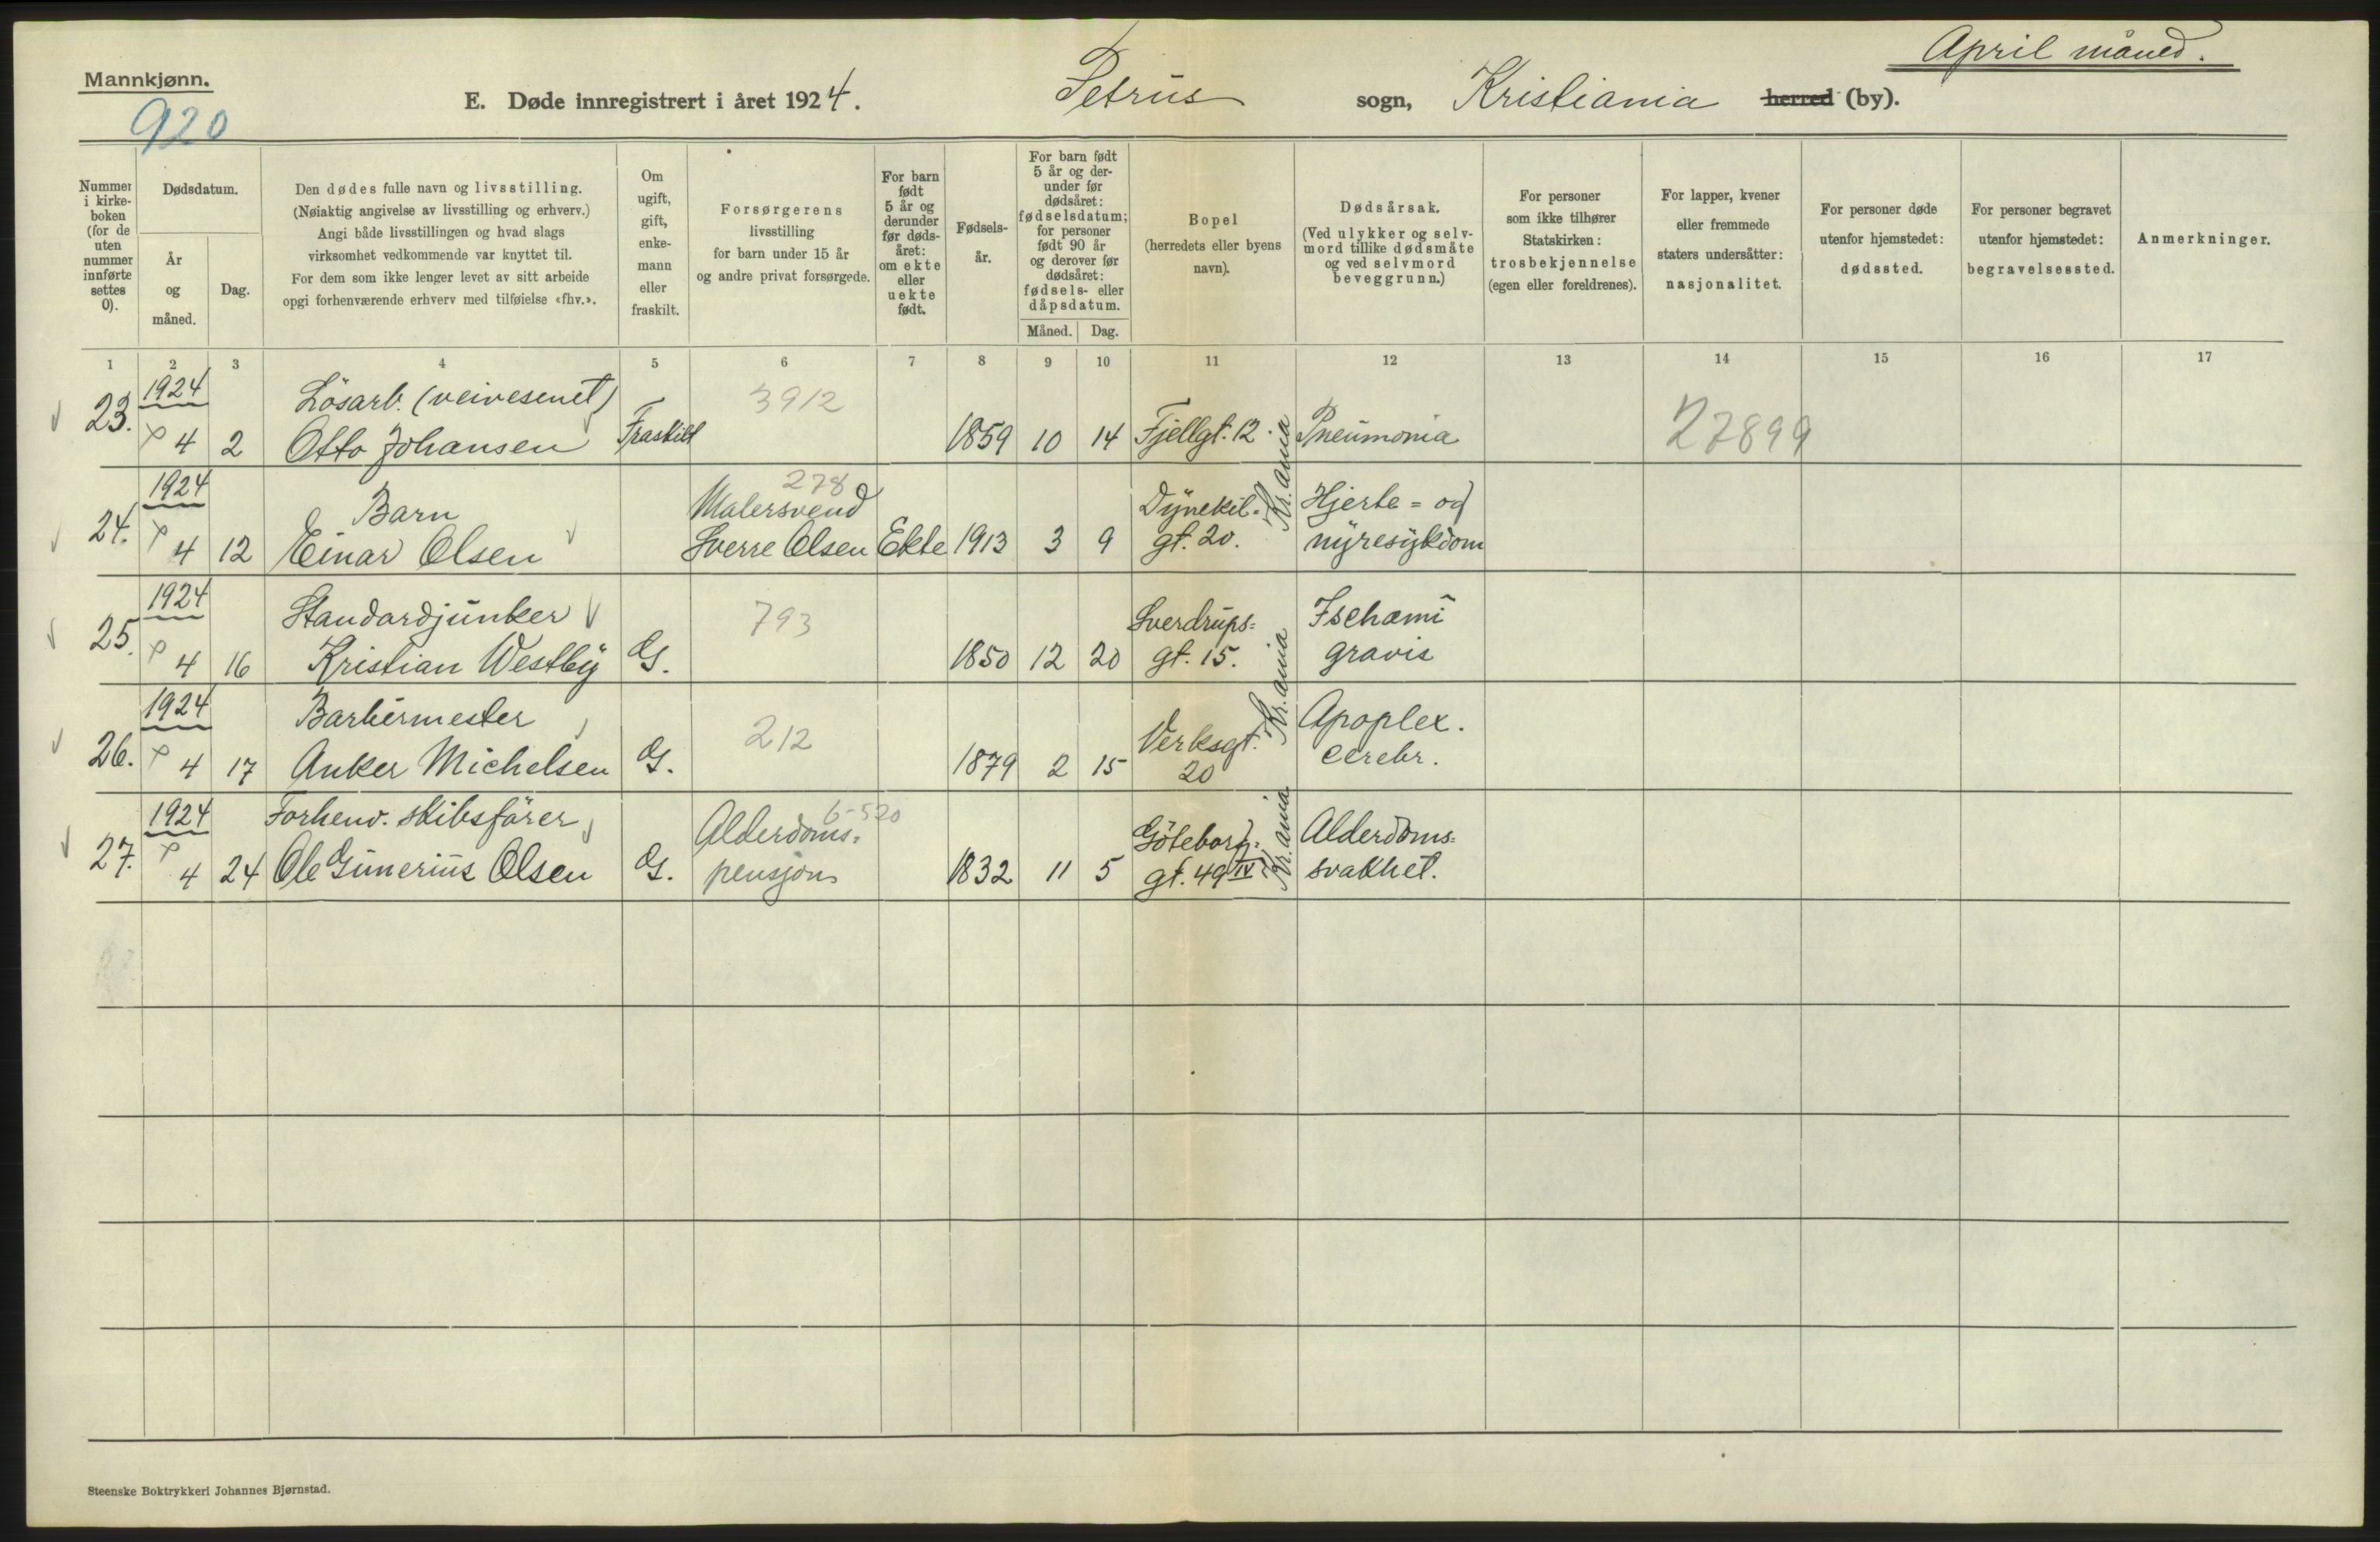 April måned.
Mannkjønn.
920
E. Døde innregistrert i året 1924. Petrus sogn, Kristiania herred (by).
Nummer i kirke-boken (for de uten nummer innførte settes 0).
Dødsdatum.
År og måned.
Dag.
Den dødes fulle navn og livsstilling.
(Nøiaktig angivelse av livsstilling og erhverv.)
Angi både livsstillingen og hvad slags
virksomhet vedkommende var knyttet til.
For dem som ikke lenger levet av sitt arbeide
opgi forhenværende erhverv med tilføielse «fhv.».
Om ugift, gift, enke-mann eller fraskilt.
Forsørgerens
livsstilling
for barn under 15 år
og andre privat forsørgede.
For barn født 5 år og derunder før døds-året: om ekte eller uekte født.
Fødsels-år.
For barn født 5 år og der-under før dødsåret: fødselsdatum; for personer født 90 år og derover før dødsåret: fødsels- eller dåpsdatum.
Måned. Dag.
Bopel
(herredets eller byens
navn).
Dødsårsak.
(Ved ulykker og selv-
mord tillike dødsmåte
og ved selvmord
beveggrunn.)
For personer
som ikke tilhører
Statskirken:
trosbekjennelse
(egen eller foreldrenes).
For lapper, kvener
eller fremmede
staters undersåtter:
nasjonalitet.
For personer døde
utenfor hjemstedet:
dødssted.
For personer begravet
utenfor hjemstedet:
begravelsessted.
Anmerkninger.
1 2 3 4 5 6 7 8 9 10 11 12 13 14 15 16 17
1924 Lösarb. (veivesenet) 3912
23. 4 2 Otto Johansen Fraskilt 1859 10 14 Fjellgt. 12. Kr.ania Pneumonia 27899
1924 Barn 278 Malersvend Dynekil- Hjerte= og
24. 4 12 Einar Olsen Sverre Olsen Ekte 1913 3 9 gt. 20. nyresykdom
1924 Standardjunker 793 Sverdrups= Ischæmi
25. 4 16 Kristian Westby G. 1850 12 20 gt. 15. Kr.ania gravis
1924 Barbérmester 212 Verksgt. Apoplex.
26. 4 17 Anker Michelsen G. 1879 2 15 20 cerebr.
1924 Forhenv. skibsfører 6-520 Alderdoms= Göteborg= Kr.ania Alderdoms=
27. 4 24 Ole Gunerius Olsen G. pensjon 1832 11 5 gt. 49 IV svakhet.
Steenske Boktrykkeri Johannes Bjørnstad.